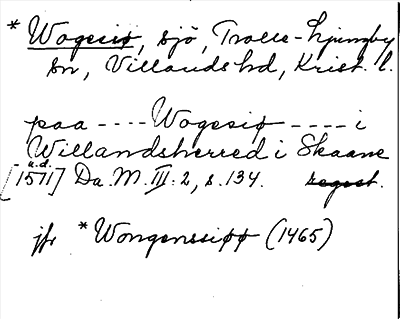 * Wogesiø, sjö, Trolle-Ljungby
sn, Villands hd, Krist. l.
paa ---- Wogesiø ---- i
Willandsherred i Skaane
u.d.
[1571] Da. M. III: 2, s. 134. regest.
jfr *Wongenssiøø (1465)